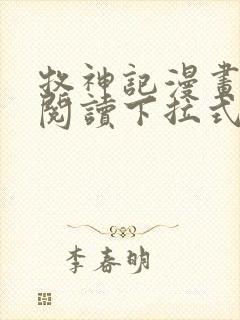 牧神記漫畫
閱讀下拉式
李春明